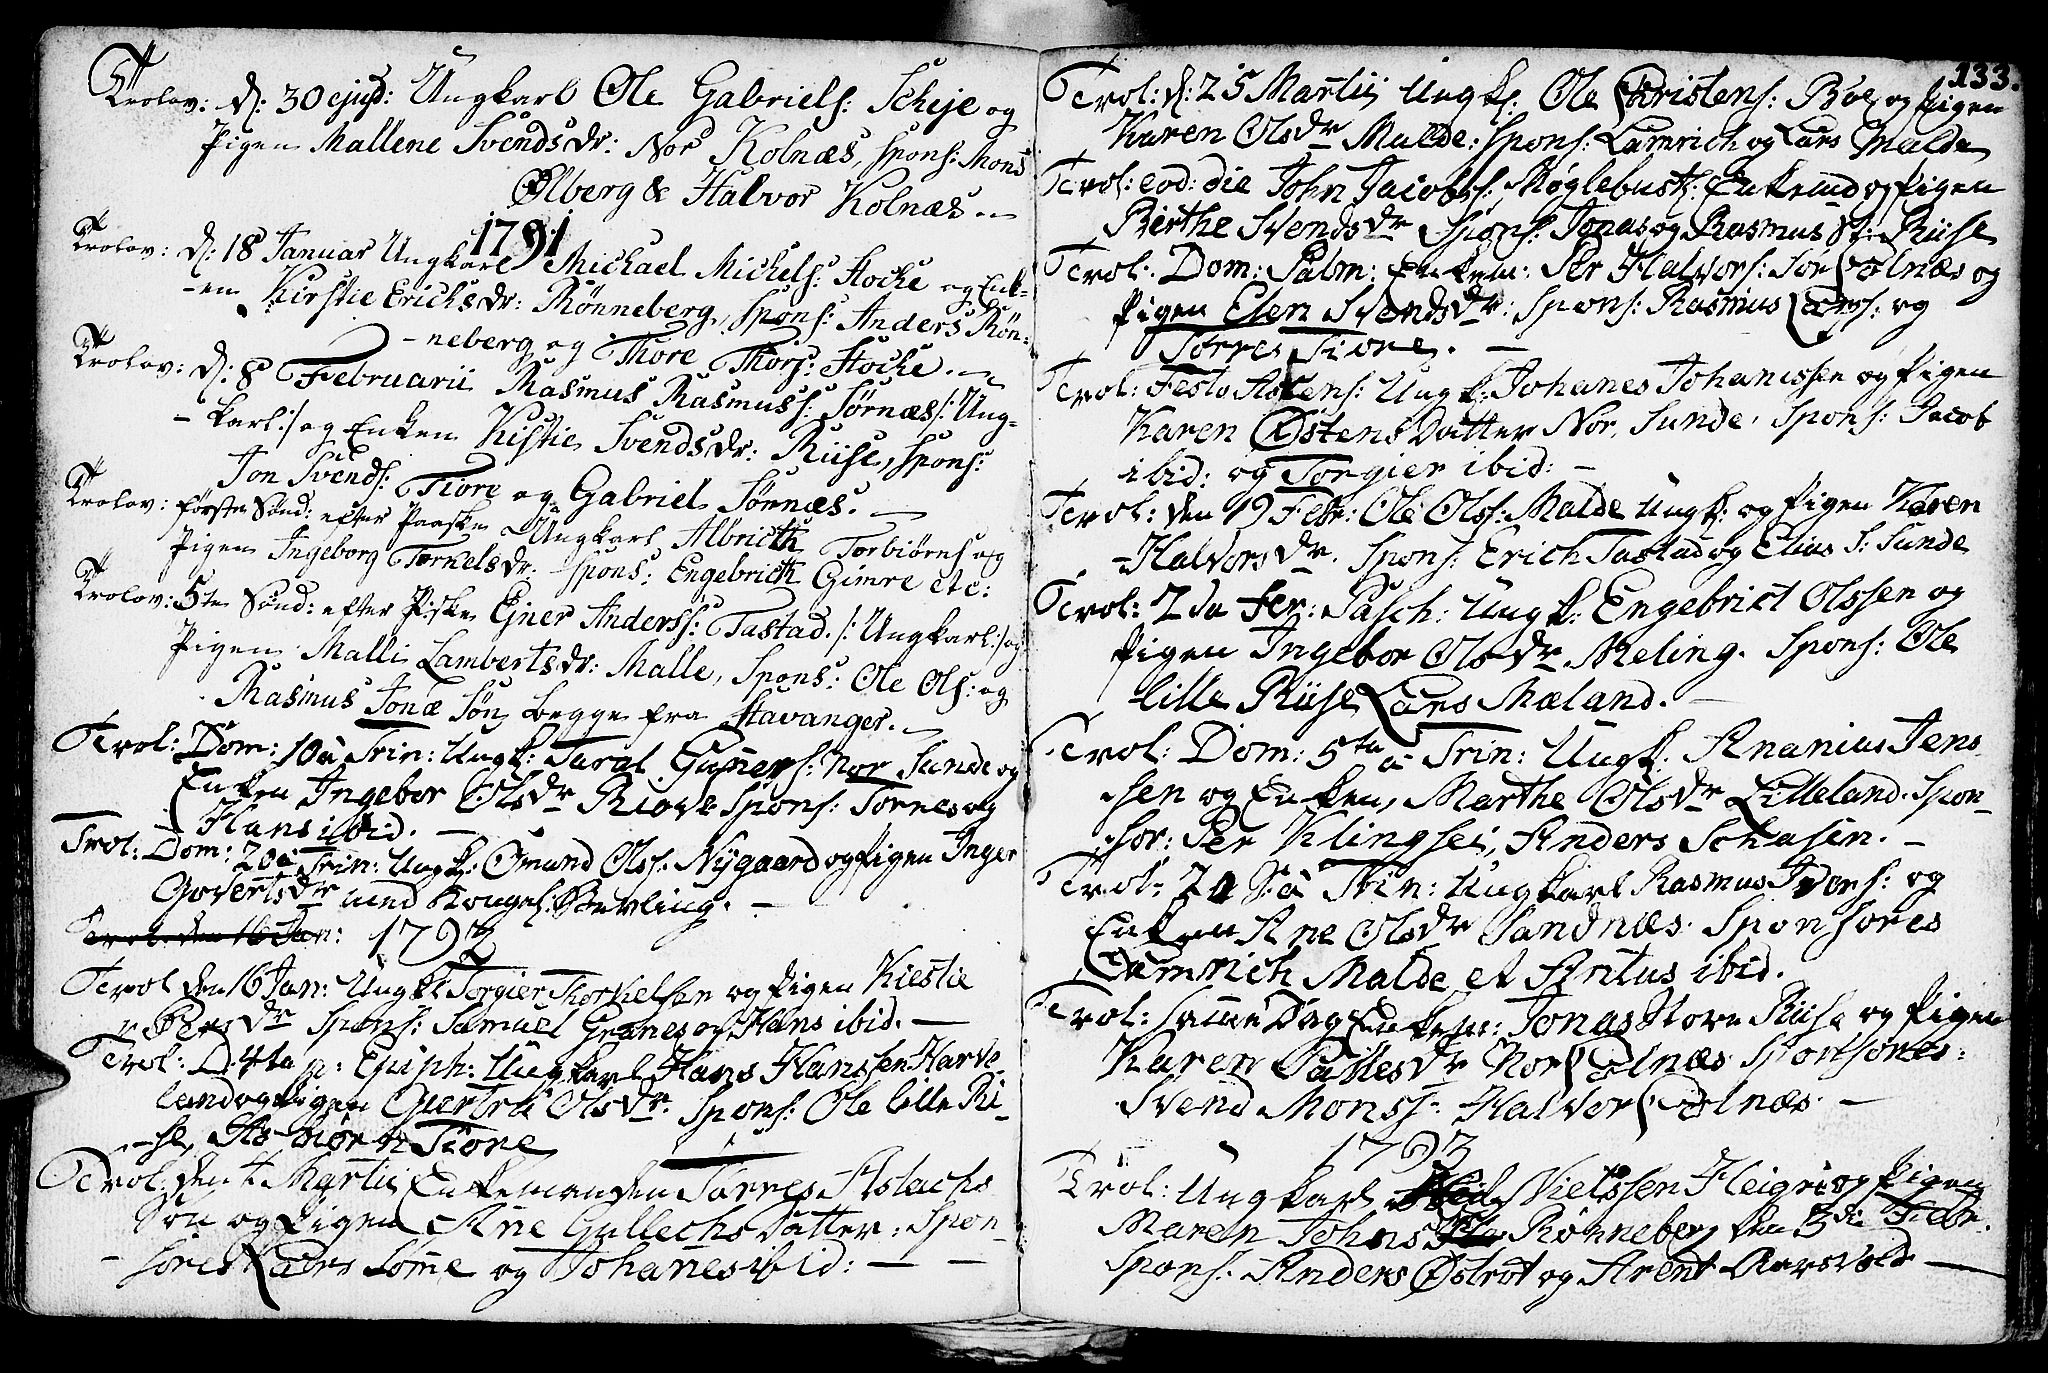 Trolov: d: 30 ejusd: Ungkarl Ole Gabriels: Scheje og
Pigen Mallene Svendsdr: Nor Kolnæs, spons: Mons
Ølberg & Halvor Kolnæs.
1791
Trolov: d: 18 Januar Ungkarl Michael Michels: Hocke og Enk-
-en Kirstie Ericksdr: Rönneberg, Spons: Anders Rön-
-neberg og Thore Thors: Hocke.
Trolov: d: 8 Februarii Rasmus Rasmuss: Sörnæs /: Ung-
-karl :/ og Enken Kistie Svendsdr: Riise, Spons:
Jon Svends: Tiore og Gabriel Sörnæs.
Trolov: förste Sönd: efter Paaske Ungkarl Albricth Torbiörns: og
Pigen Ingeborg Tornelsdr. Spons: Engebricth Gimre etc:
Trolov: 5te Sönd: efter Påske Ejner Anderss: Tastad. /: Ungkarl :/ og
Pigen Malli Lambertsdr: Malle, Spons: Ole Ols: og
Rasmus Jonæ Sön, begge fra Stavanger.
Trol: Dom: 10 a Trin: Ungk: Taral Guners: Nor Sunde og
Enken Ingebor Olsdr Riove Spons: Tornes og
Hans ibid.
Trol: Dom: 20 a Trin: Ungk: Omund Olss: Nÿgaard og Pigen Inger
Govertsdr med Kongel: Bevling.
Trol: den 16 Jan: 1792
Trol den 16 Jan: Ungk: Torgier Thorkelsen og Pigen Kiestie
Persdr Spons: Samuel Granes og Hans ibid.
Trol: D: 4ta p: Epiph: Ungkarl Hans Hanssen Harve-
land og Pigen Giertru Olsdr. Spons: Ole lille Ri-
-se, Asbiörn Tiore
Trol: den 4 Martii Enkemanden Torres Aslachs
Sön og Pigen Ane Gullechs Datter: Spon-
sores Lars Somme og Johanes ibid:
133.
Trol: d: 25 Martii Ungk: Ole Christens: Böe og Pigen
Karen Olsdr Malde: Spons: Lamrich og Lars Malde
Trol: eod: die John Jacobs: Møglebust: Enkemd og Pigen
Birthe Svendsdr Spons: Jonas og Rasmus St: Riise
Trol: Dom: Palm: Enkem: Per Halvors: Sör Colnæs og
Pigen Elen Svendsdr: Spons: Rasmus Lars: og
Torres Tiore.
Trol: Festo Astens: Ungk: Johanes Johanssen og Pigen
Karen Østens Datter Nor, Sunde, Spons: Jacob
ibid: og Torgier ibid:
Trol: den 19 Febr: Ole Olss: Malde Ungk: og Pigen Karen
Halvorsdr. Spons: Erich Tastad og Elias S: Sunde
Trol: 2da Fer: Pasch: Ungk: Engebrict Olssen og
Pigen Ingebor Olsdr Meling. Spons: Ole
lille Riise Lars Mæland.
Trol: Dom: 5ta a Trin: Ungk: Ananias Jens
sen og Enken, Marthe Olsdr Lilleland. Spon-
sor: Per Klingsei, Anders Schasen.
Trol: 20 S: a Trin: Ungkarl Rasmus Ivars: og
Enken Ane Olsdr Sandnæs. Sponsores
Lamrich Malde et Aritus ibid.
Trol: samme Dag Enkem: Jonas Store Riise og Pigen
Karen Pallesdr Nor Colnæs Sponsores:
Svend Monss: Halvor Colnæs
1793
Trol: Ungkarl Niels Nielssen Heigre og Pigen
Maren Johnsdr Rönneberg den 3die Febr.
Spons: Anders Østrot og Arent Aarsvold